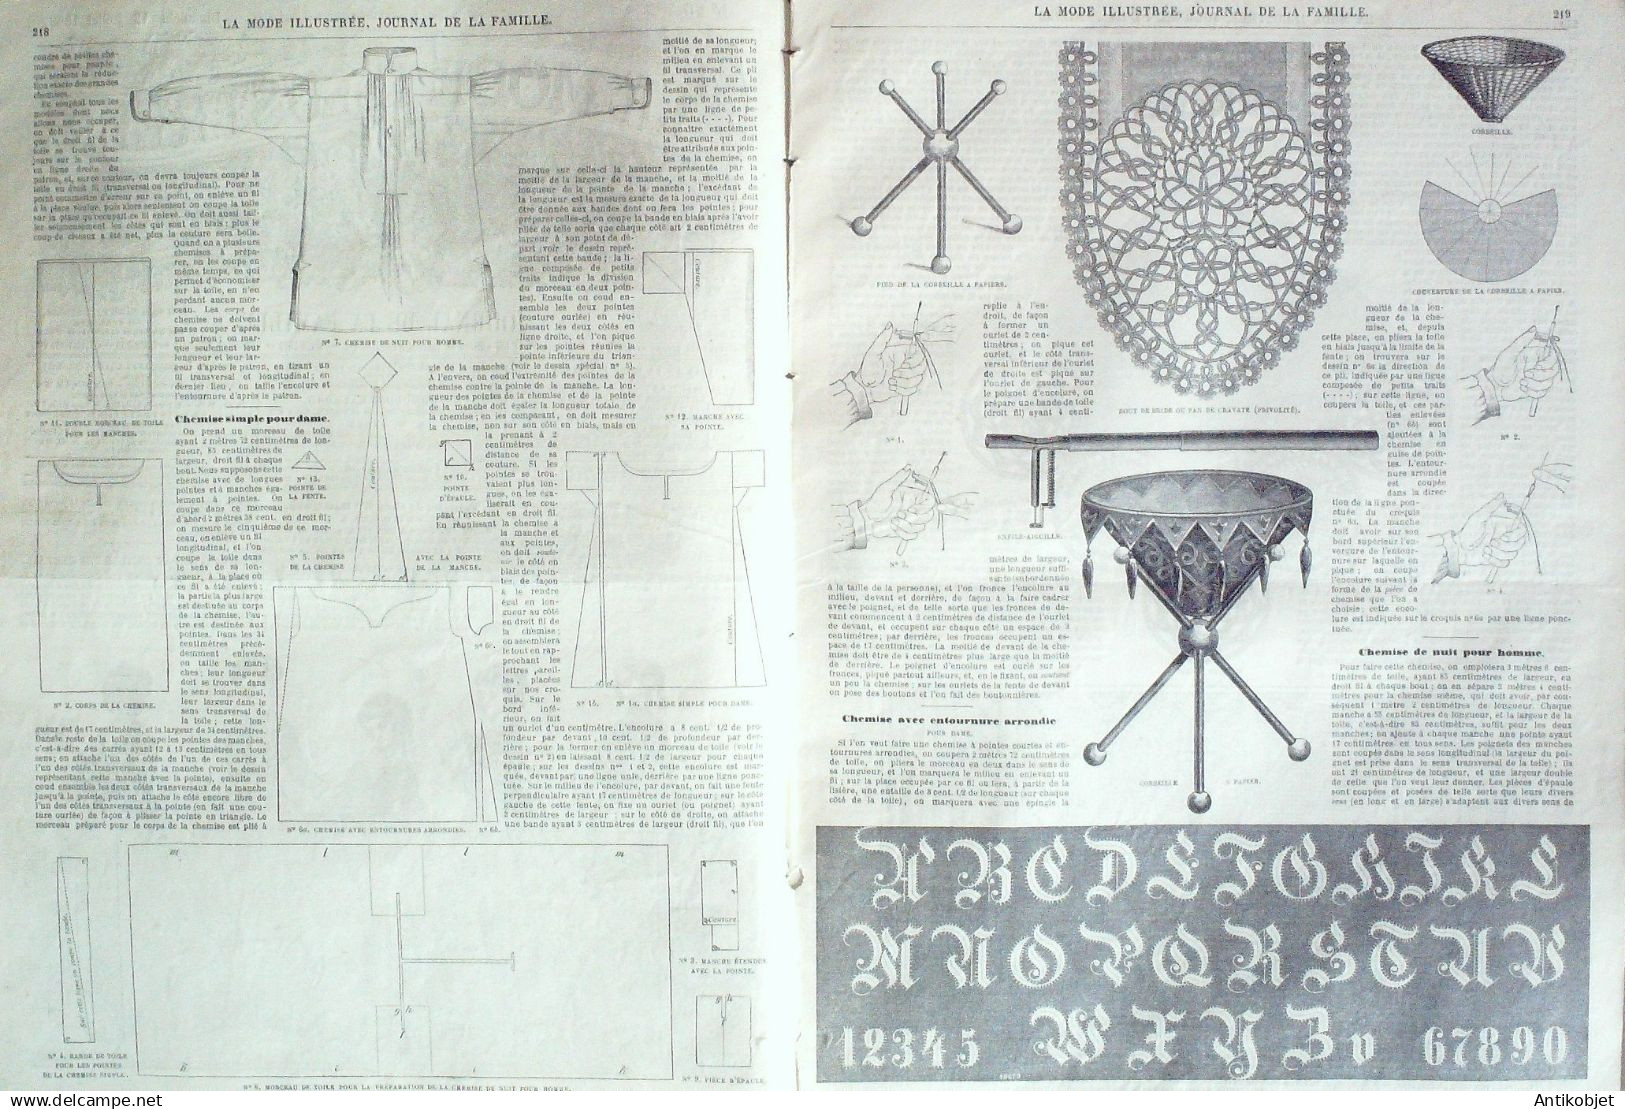 218
LA MODE ILLUSTRÉE, JOURNAL DE LA FAMILLE.
coudre de petites che-
mises pour poupée,
qui seraient la réduc-
tion exacte des grandes
chemises.
En coupant tous les
modèles dont nous
allons nous occuper,
on doit veiller à ce
que le droit fil de la
toile se trouve tou-
jours sur le contour
en ligne droite du
patron, et, sur ce contour, on devra toujours couper la
toile en droit fil (transversal ou longitudinal). Pour ne
point commettre d'erreur sur ce point, on enlève un fil
à la place voulue, puis alors seulement on coupe la toile
sur la place qu'occupait ce fil enlevé. On doit aussi tail-
ler soigneusement les côtés qui sont en biais; plus le
coup de ciseaux a été net, plus la couture sera belle.
Quand on a plusieurs
chemises à prépa-
rer, on les coupe en
même temps, ce qui
permet d'économiser
sur la toile, en n'en
perdant aucun mor-
ceau. Les corps de
chemise ne doivent
pas se couper d'après
un patron; on mar-
que seulement leur
longueur et leur lar-
geur d'après le patron, en tirant un
fil transversal et longitudinal; en
dernier lieu, on taille l'encolure et
l'entournure d'après le patron.
Chemise simple pour dame.
On prend un morceau de toile
ayant 2 mètres 72 centimètres de lon-
gueur, 85 centimètres de
largeur, droit fil à chaque
bout. Nous supposons cette
chemise avec de longues
pointes et à manches éga-
lement à pointes. On
coupe dans ce morceau
d'abord 2 mètres 38 cent. en droit fil;
on mesure le cinquième de ce mor-
ceau, on enlève un fil
longitudinal, et l'on
coupe la toile dans
le sens de sa lon-
gueur, à la place où
ce fil a été enlevé;
la partie la plus large
est destinée au corps
de la chemise, l'au-
tre est destinée aux
pointes. Dans les 34
centimètres précé-
demment enlevés,
on taille les man-
ches; leur longueur
doit se trouver dans
le sens longitudinal,
leur largeur dans le
sens transversal de
la toile; cette lon-
gueur est de 17 centimètres, et la largeur de 34 centimètres.
Dans le reste de la toile on coupe les pointes des manches,
c'est-à-dire des carrés ayant 12 à 13 centimètres en tous
sens; on attache l'un des côtés de l'un de ces carrés à
l'un des côtés transversaux de la manche (voir le dessin
représentant cette manche avec la pointe), ensuite on
coud ensemble les deux côtés transversaux de la manche
jusqu'à la pointe, puis on attache le côté encore libre de
l'un des côtés transversaux à la pointe (en fait une cou-
ture ourlée) de façon à plisser la pointe en triangle. Le
morceau préparé pour le corps de la chemise est plié à
moitié de sa longueur;
et l'on en marque le
milieu en enlevant un
fil transversal. Ce pli
est marqué sur le
dessin qui représente
le corps de la chemise
par une ligne de pe-
tits traits (- - - -). Pour
connaître exactement
la longueur qui doit
être attribuée aux poin-
tes de la chemise, on
marque sur celle-ci la hauteur représentée par la
moitié de la largeur de la manche, et la moitié de la
longueur de la pointe de la manche; l'excédant de
la longueur est la mesure exacte de la longueur qui doit
être donnée aux bandes dont on fera les pointes; pour
préparer celles-ci, on coupe la bande en biais après l'avoir
pliée de telle sorte que chaque côté ait 2 centimètres de
largeur à son point de dé-
part (voir le dessin repré-
sentant cette bande; la li-
gne composée de petits
traits indique la division
du morceau en deux poin-
tes). Ensuite on coud en-
semble les deux pointes
(couture ourlée) en réu-
nissant les deux côtés en
ligne droite, et l'on pique
sur les pointes réunies la
pointe inférieure du trian-
gle de la manche (voir le dessin spécial nº 5).
A l'envers, on coud l'extrémité des pointes de la
chemise contre la pointe de la manche. La lon-
gueur des pointes de la chemise et de la pointe
de la manche doit égaler la longueur totale de
la chemise; en les comparant, on doit mesurer
la chemise, non sur son côté en biais, mais en
la prenant à 2
centimètres de
distance de sa
couture. Si les
pointes se trou-
vaient plus lon-
gues, on les éga-
liserait en cou-
pant l'excédant en droit fil.
En réunissant la chemise a
la manche et
aux pointes,
on doit soute-
nir le côté en
biais des poin-
tes, de façon
à le rendre
égal en lon-
gueur au côté
en droit fil de
la chemise;
on assemblera
le tout en rap-
prochant les
lettres pareil-
les, placées
sur nos cro-
quis. Sur le
bord infé-
rieur, on fait
un ourlet d'un centimètre. L'encolure a 8 cent. 1/2 de pro-
fondeur par devant, 10 cent. 1/2 de profondeur par der-
rière; pour la former on enlève un morceau de toile (voir le
dessin nº 2) en laissant 8 cent. 1/2 de largeur pour chaque
épaule; sur les dessins nos 1 et 2, cette encolure est mar-
quée, devant par une ligne unie, derrière par une ligne ponc-
tuée. Sur le milieu de l'encolure, par devant, on fait une fente
perpendiculaire ayant 17 centimètres de longueur; sur le côté
gauche de cette fente, on fixe un ourlet (ou poignet) ayant
2 centimètres de largeur; sur le côté de droite, on attache
une bande ayant 3 centimètres de largeur (droit fil), que l'on
Nº 7. CHEMISE DE NUIT POUR HOMME.
Couture.
Nº 11. DOUBLE MORCEAU DE TOILE
POUR LES MANCHES.
Nº 12. MANCHE AVEC
SA POINTE.
Nº 13.
POINTE DE
LA FENTE.
Nº 10.
POINTE
D'ÉPAULE.
Couture.
Nº 5. POINTES
DE LA CHEMISE
AVEC LA POINTE
DE LA MANCHE.
Nº 2. CORPS DE LA CHEMISE.
Nº 6c.
Nº 1b.
Nº 1a. CHEMISE SIMPLE POUR DAME.
Nº 6a. CHEMISE AVEC ENTOURNURES ARRONDIES.
Nº 6b.
m
l
l
m
g h
f
Couture.
Nº 3. MANCHE ÉTENDUE
AVEC LA POINTE.
g h
Nº 9. PIÈCE D'ÉPAULE.
Nº 4. BANDE DE TOILE
POUR LES POINTES
DE LA CHEMISE SIMPLE.
Nº 8. MORCEAU DE TOILE POUR LA PRÉPARATION DE LA CHEMISE DE NUIT POUR HOMME.
LA MODE ILLUSTRÉE, JOURNAL DE LA FAMILLE.
219
PIED DE LA CORBEILLE A PAPIERS.
CORBEILLE.
COUVERTURE DE LA CORBEILLE A PAPIER.
BOUT DE BRIDE OU PAN DE CRAVATE (FRIVOLITÉ).
Nº 1.
Nº 2.
Nº 3.
Nº 4.
ENFILE-AIGUILLE.
CORBEILLE
A PAPIER.
replie à l'en-
droit, de façon
à former un
ourlet de 2 cen-
timètres; on pique cet
ourlet, et le côté trans-
versal inférieur de l'ourlet
de droite est piqué sur
l'ourlet de gauche. Pour
le poignet d'encolure, on
prépare une bande de toile
(droit fil) ayant 4 centi-
mètres de largeur,
une longueur suffi-
sante (subordonnée
à la taille de la personne), et l'on fronce l'encolure au
milieu, devant et derrière, de façon à la faire cadrer
avec le poignet, et de telle sorte que les fronces de de-
vant commencent à 2 centimètres de distance de l'ourlet
de devant, et occupent sur chaque côté un espace de 3
centimètres; par derrière, les fronces occupent un es-
pace de 17 centimètres. La moitié de devant de la che-
mise doit être de 4 centimètres plus large que la moitié
de derrière. Le poignet d'encolure est ourlé sur les
fronces, piqué partout ailleurs, et, en le fixant, on soutient
un peu la chemise; sur les ourlets de la fente de devant
on pose des boutons et l'on fait des boutonnières.
Chemise avec entournure arrondie
POUR DAME.
Si l'on veut faire une chemise à pointes courtes et en-
tournures arrondies, on coupera 2 mètres 72 centimètres
de toile, on pliera le morceau en deux dans le sens de
sa longueur, et l'on marquera le milieu en enlevant un
fil; sur la place occupée par ce fil on fera, à partir de la
lisière, une entaille de 8 cent. 1/2 de longueur (sur chaque
côté de la toile), on marquera avec une épingle la
moitié de la lon-
gueur de la che-
mise, et, depuis
cette place, on pliera la toile
en biais jusqu'à la limite de la
fente; on trouvera sur le
dessin nº 6a la direction de
ce pli, indiquée par une ligne
composée de petits traits
(- - - -); sur cette ligne, on
coupera la toile, et ces par-
ties enlevées
(nº 6b) sont
ajoutées à la
chemise en
guise de poin-
tes. L'entour-
nure arrondie
est coupée
dans la direc-
tion de la ligne ponc-
tuée du croquis
nº 6a. La manche
doit avoir sur son
bord supérieur l'en-
vergure de l'entour-
nure sur laquelle on
pique; on coupe
l'encolure suivant la
forme de la pièce de
chemise que l'on a
choisie; cette enco-
lure est indiquée sur le croquis nº 6a par une ligne ponc-
tuée.
Chemise de nuit pour homme.
Pour faire cette chemise, on emploiera 3 mètres 6 cen-
timètres de toile, ayant 85 centimètres de largeur, en
droit fil à chaque bout; on en sépare 2 mètres 4 centi-
mètres pour la chemise même, qui doit avoir, par con-
séquent 1 mètre 2 centimètres de longueur. Chaque
manche a 55 centimètres de longueur, et la largeur de la
toile, c'est-à-dire 85 centimètres, suffit pour les deux
manches; on ajoute à chaque manche une pointe ayant
17 centimètres en tous sens. Les poignets des manches
sont coupés dans le sens longitudinal (la largeur du poi-
gnet est prise dans le sens transversal de la toile); ils
ont 21 centimètres de longueur, et une largeur double
de celle que l'on veut leur donner. Les pièces d'épaule
sont coupées et posées de telle sorte que leurs divers
sens (en long et en large) s'adaptent aux divers sens de
A B C D E F G H I K L
M N O P Q R S T U V
1 2 3 4 5 W X Y Z v 6 7 8 9 0
Antikobjet